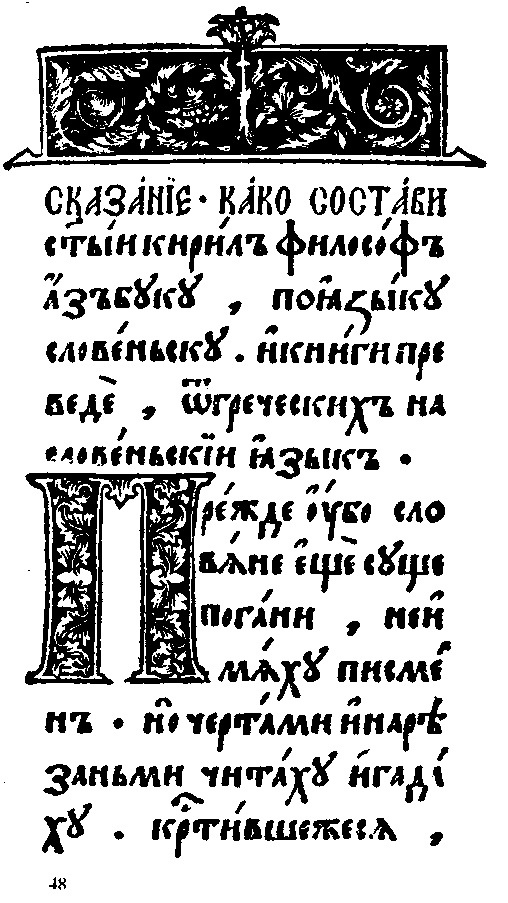 СКАЗА́НЇЕ · КА́КО СОСТА́ВИ
ст҃ы́и кири́лъ филосо́фъ
а҆́збѹкѹ , по ꙗ҆зы́кѹ
слове́ньскѹ . и҆ кни́ги пре
ведѐ , ѿ греческихъ на
слове́ньскїи ꙗ҆зыкъ .
Пре́жде ѹ҆́бо сло
вѧ́не е҆щѐ сѹще
пога́ни , не и҆
мѧ́хѹ писме́
нъ . но̀ черта́ми и҆ нарѣ́
заньми чита́хѹ и҆ гадѧ́
хѹ . кр҃ти́вшежесѧ ,
48